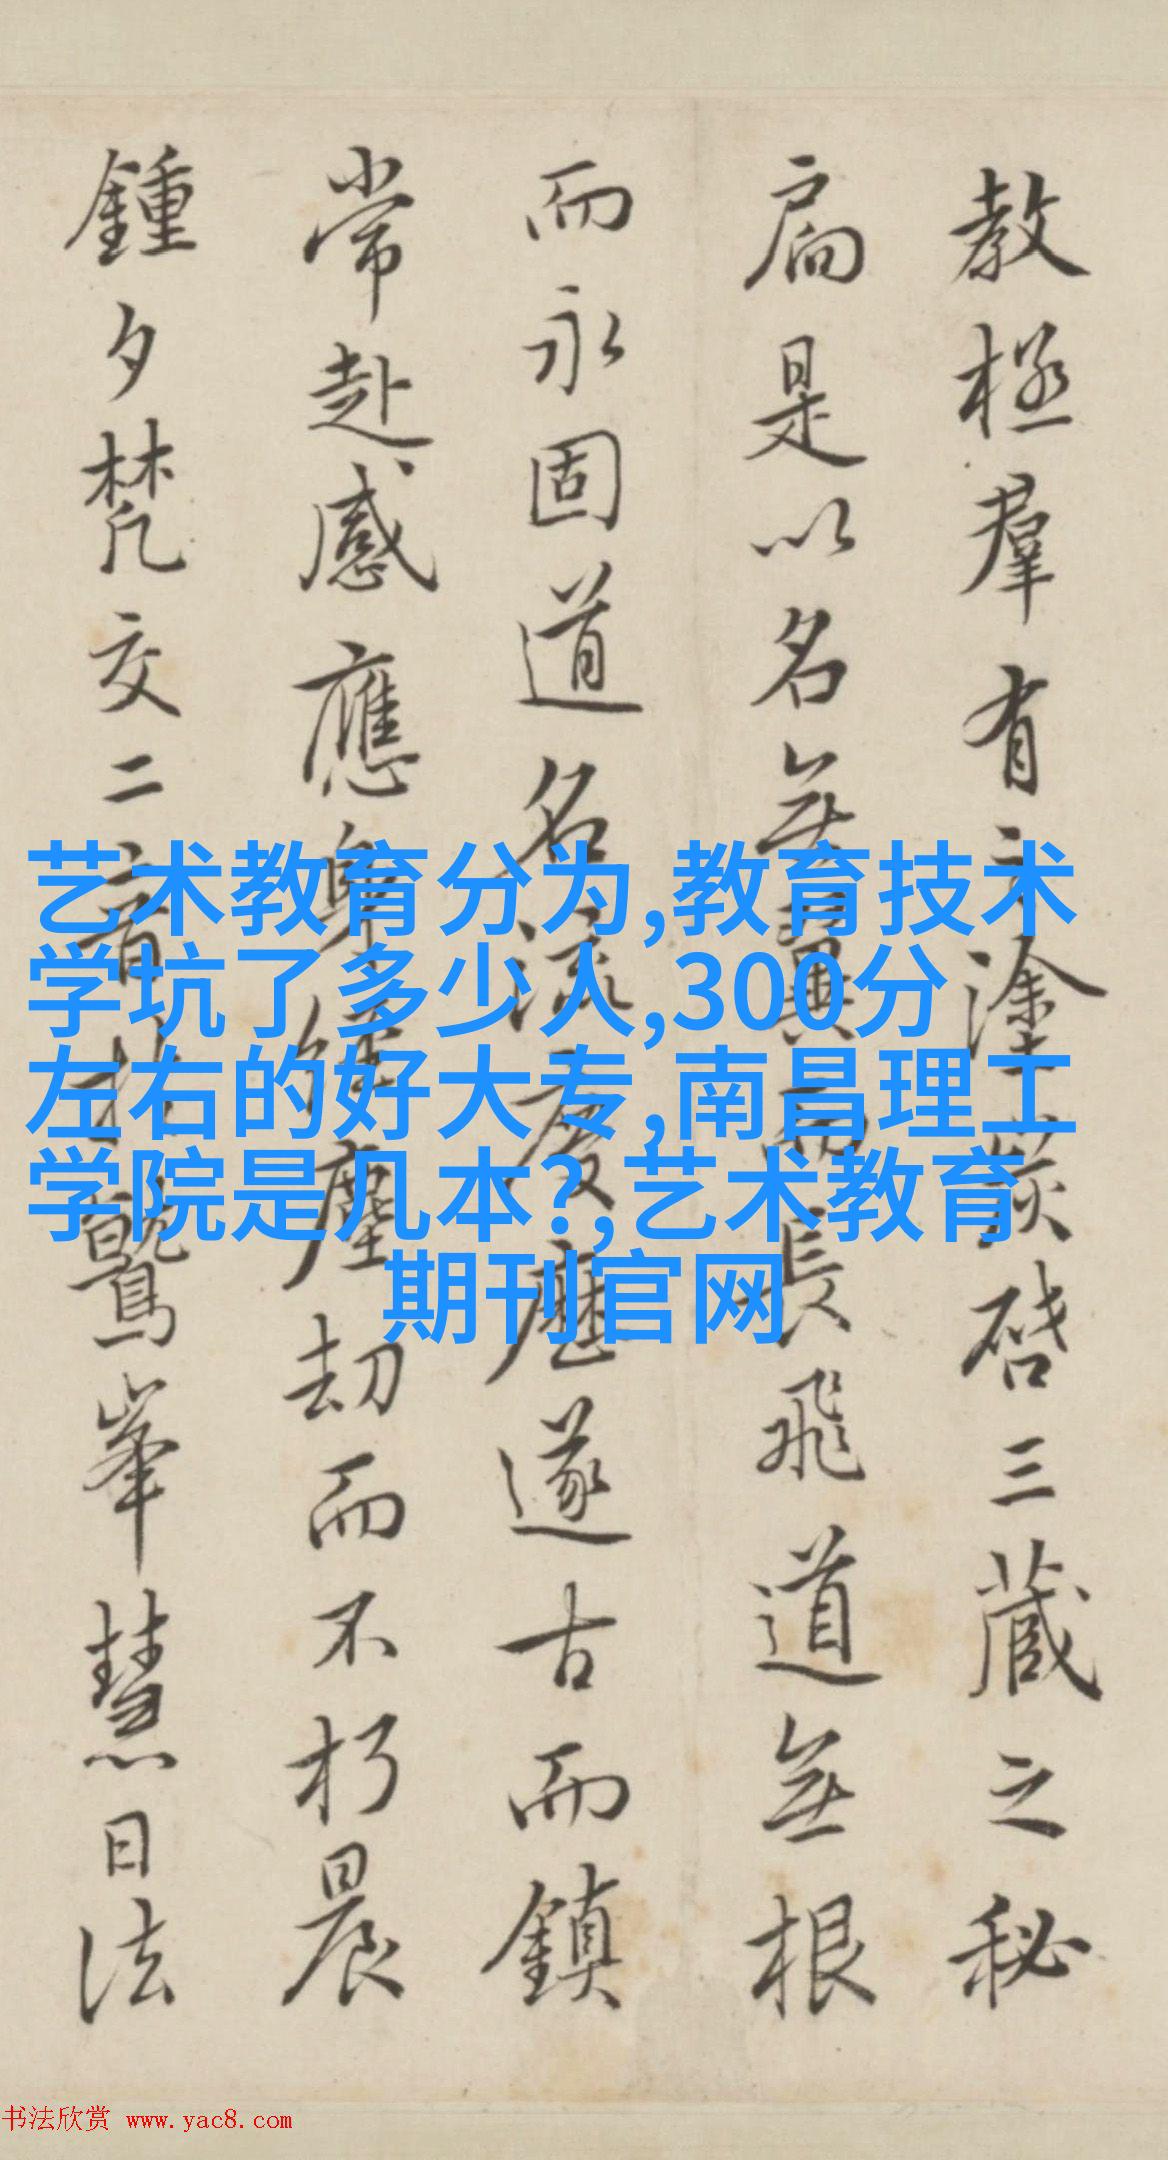 教極羣有之塗炭啓三藏之秘
扃是以名無翼而長飛道無根
而永固道名流慶歷遂古而鎮
常赴感應身經塵劫而不朽晨
鍾夕梵交二音於鷲峯慧日法
艺术教育分为,教育技术
学坑了多少人,300分
左右的好大专,南昌理工
学院是几本?,艺术教育
期刊官网
书法欣赏 www.yac8.com